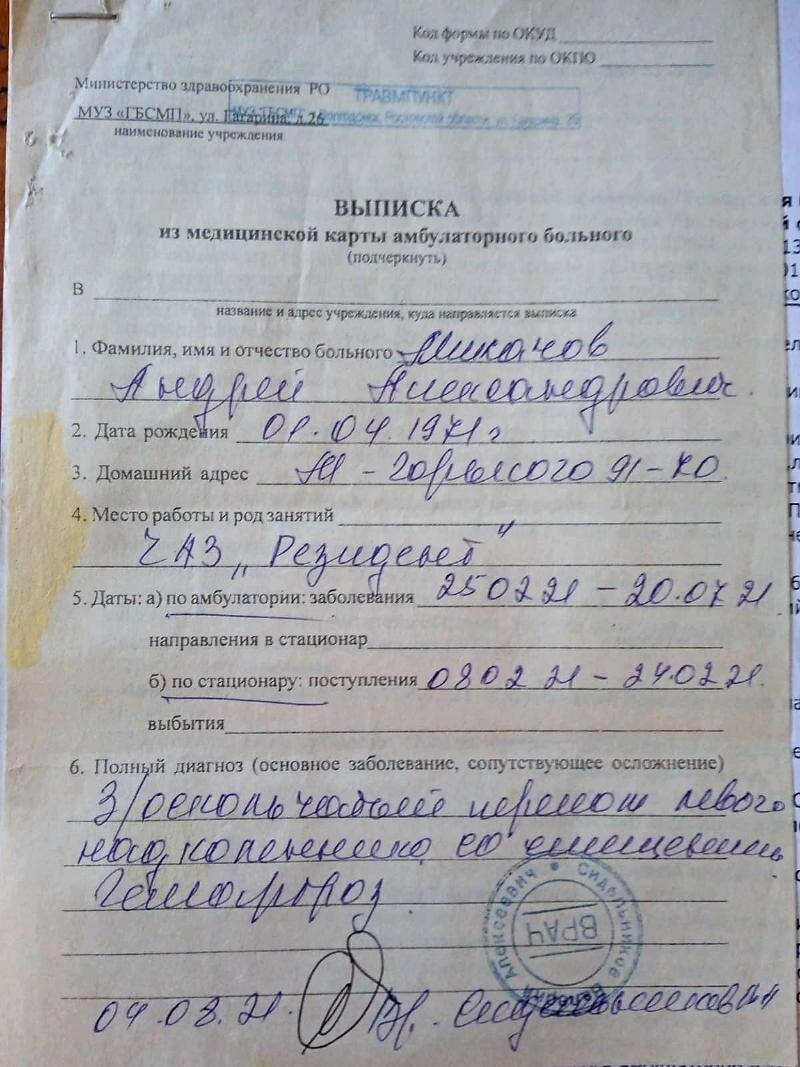 Код формы по ОКУД
Код учреждения по ОКПО
Министерство здравоохранения РО
ТРАВМПУНКТ
МУЗ «ГБСМП», ул. Гагарина, д.26
наименование учреждения
ВЫПИСКА
из медицинской карты амбулаторного больного
(подчеркнуть)
В
название и адрес учреждения, куда направляется выписка
1. Фамилия, имя и отчество больного
Андрей Александрович.
2. Дата рождения 01.04.1971г
3. Домашний адрес М-Горького 91-70.
4. Место работы и род занятий
ЧАЗ „Резидент"
5. Даты: а) по амбулатории: заболевания 250221 – 20.07 21
направления в стационар
б) по стационару: поступления 080221 – 240221.
выбытия
6. Полный диагноз (основное заболевание, сопутствующее осложнение)
З/оскольчатый перелом левого
надколенника со смещением
Гемартроз
Алексеевич Сидельников
ВРАЧ
04.08.21. Вр.